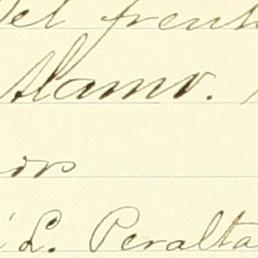 del frente
Alamo.
or
L. Peralta